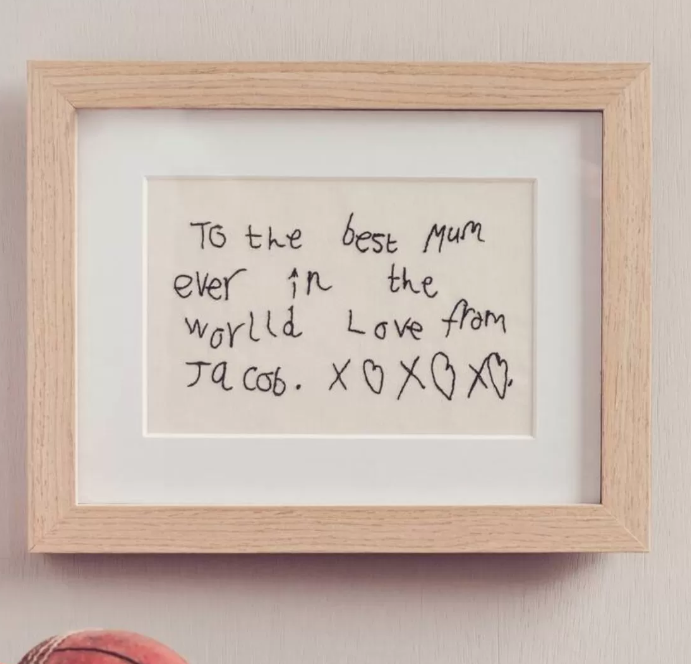 To the best Mum
ever in the
worlld Love from
Jacob. X♡X♡X♡.